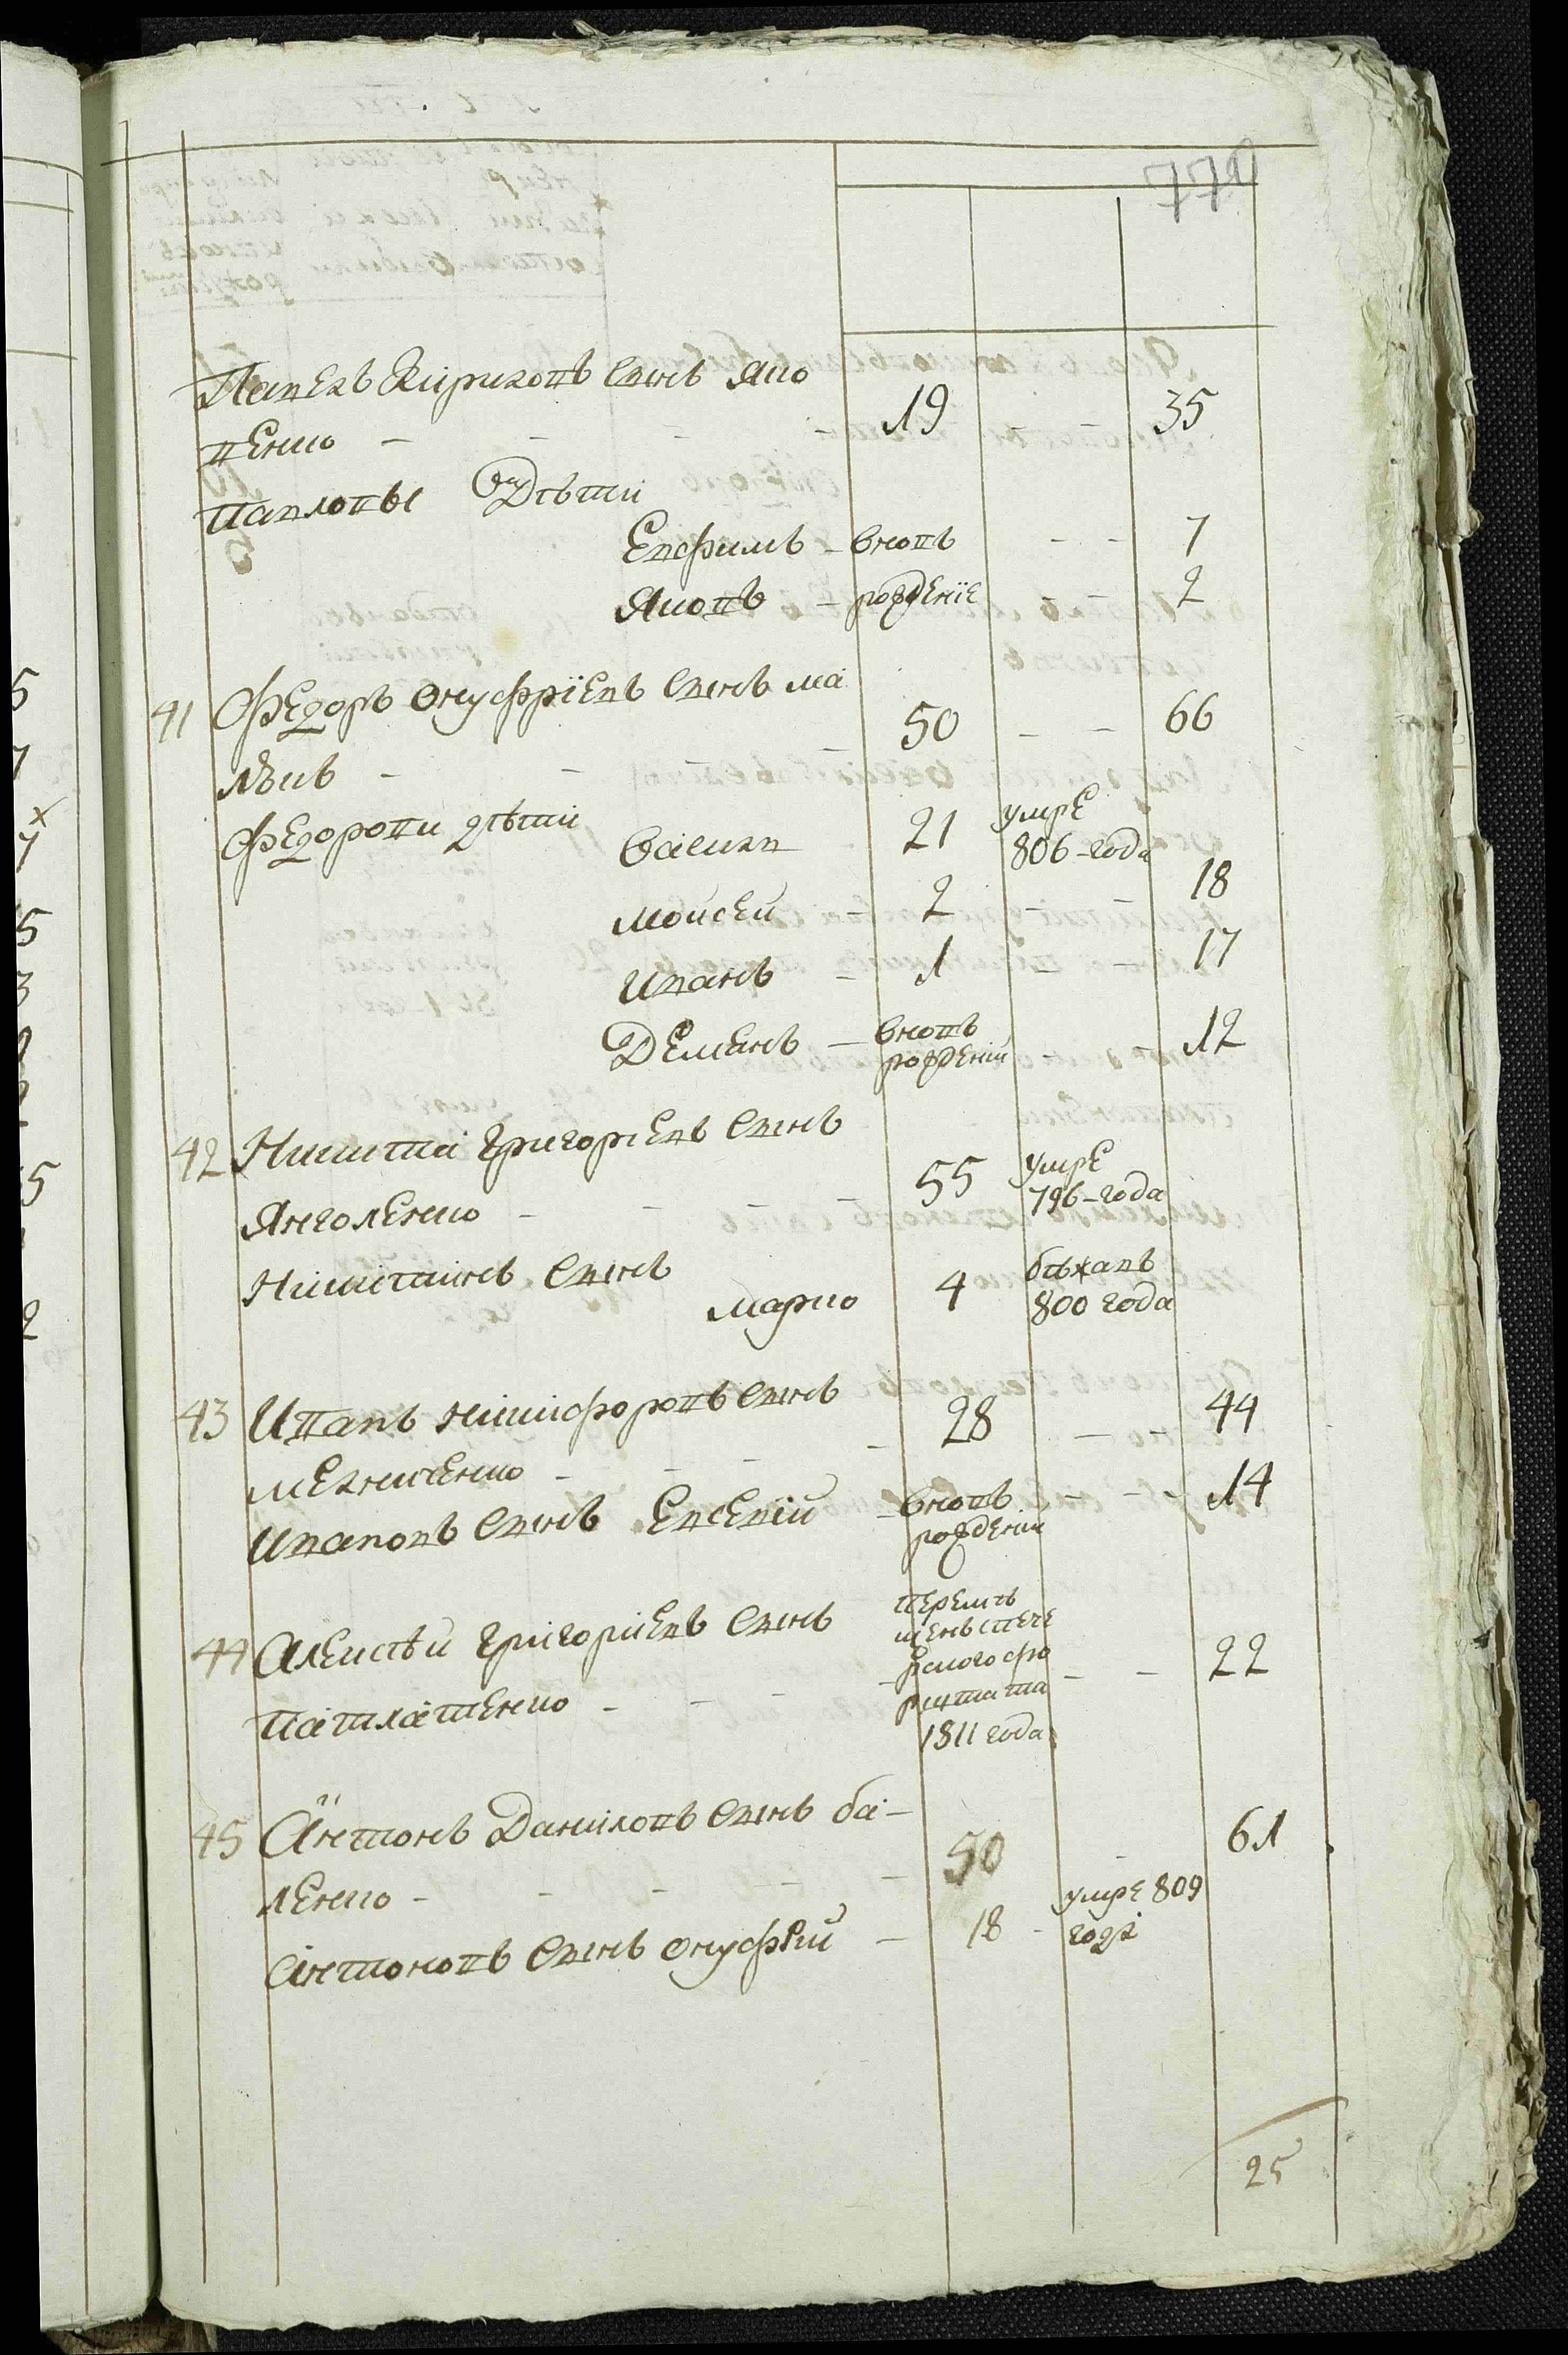 770
Павелъ Кириковъ Сынъ Яко
венко - - - - 19 35
Павловы Дѣти
Евфимъ - вновь - - 7
Яковъ - рожденіе 2
41 Федоръ Онуфріевъ Сынъ ма
лѣкъ - - - 50 - - 66
Федорови дѣти
Василь 21 умре 806-года
Мойсей - 2 - 18
Иванъ - 1 - 17
Демянъ - вновь рожденіи 12
42 Никита Григоріевъ Сынъ
Янголенко - - - 55 умре 796-года
Никитинъ Сынъ
Марко 4 бѣжавъ 800 года
43 Иванъ Никифоровъ Сынъ
- - - - 28 - - 44
Ивановъ Сынъ Евсевій - вновь рожденіи - - - 14
44 Алексѣй Григоріевъ Сынъ
Патлатенко - - - -
перемѣ
щенъ с Пече
рского фо
рштата
1811 года
- - 22
45 Антонъ Даниловъ Сынъ ба-
ленко - - - - - 50 - 61
Антоновъ Сынъ Онуфрій - 18 - умре 809 года
25